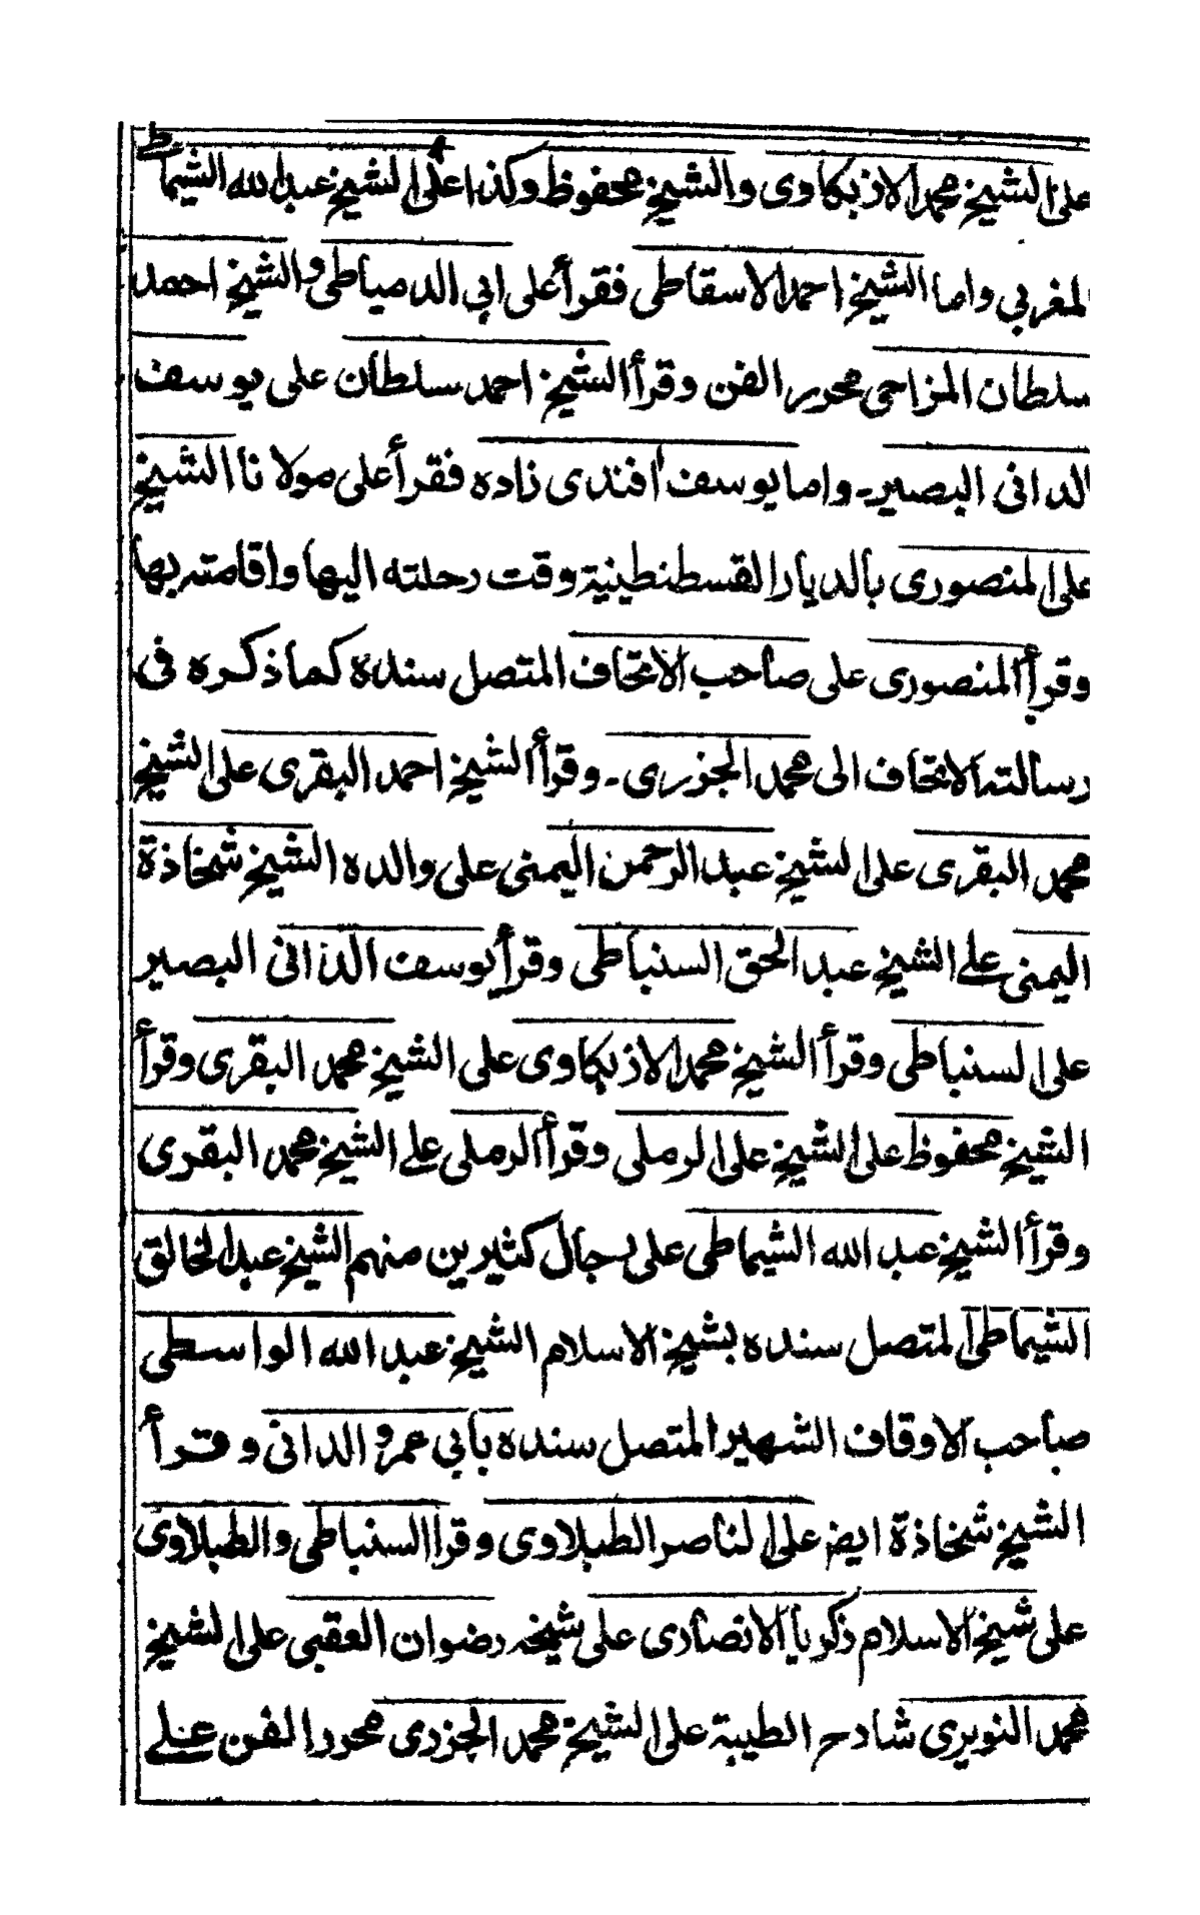 على الشيخ محمد الازبكاوى والشيخ محفوظ وكذا على الشيخ عبد الله الشماطى
المغربي واما الشيخ احمد الاسقاطى فقرأ على ابي الدمياطى والشيخ احمد
سلطان المزاحى محرر الفن وقرأ الشيخ احمد سلطان على يوسف
الدانى البصير۔ واما يوسف افندى زاده فقرأ على مولانا الشيخ
على المنصورى بالديار القسطنطينية وقت رحلته اليها واقامته بها
وقرأ المنصورى على صاحب الاتحاف المتصل سنده كما ذكره فى
رسالته الاتحاف الى محمد الجزرى۔ وقرأ الشيخ احمد البقرى على الشيخ
محمد البقرى على الشيخ عبد الرحمن اليمنى على والده الشيخ شحاذة
اليمنى على الشيخ عبد الحق السنباطى وقرأ يوسف الدانى البصير
على السنباطى وقرأ الشيخ محمد الازبكاوى على الشيخ محمد البقرى وقرأ
الشيخ محفوظ على الشيخ على الرملى وقرأ الرملى على الشيخ محمد البقرى
وقرأ الشيخ عبد الله الشيماطى على رجال كثيرين منهم الشيخ عبد الخالق
الشيماطى المتصل سنده بشيخ الاسلام الشيخ عبد الله الواسطى
صاحب الاوقاف الشهير المتصل سنده بأبي عمرو الدانى وقرأ
الشيخ شحاذة ايض على الناصر الطبلاوى وقرأ السنباطى والطبلاوى
على شيخ الاسلام زكريا الانصارى على شيخه رضوان العقبى على الشيخ
محمد النويرى شارح الطيبة على الشيخ محمد الجزرى محرر الفن على